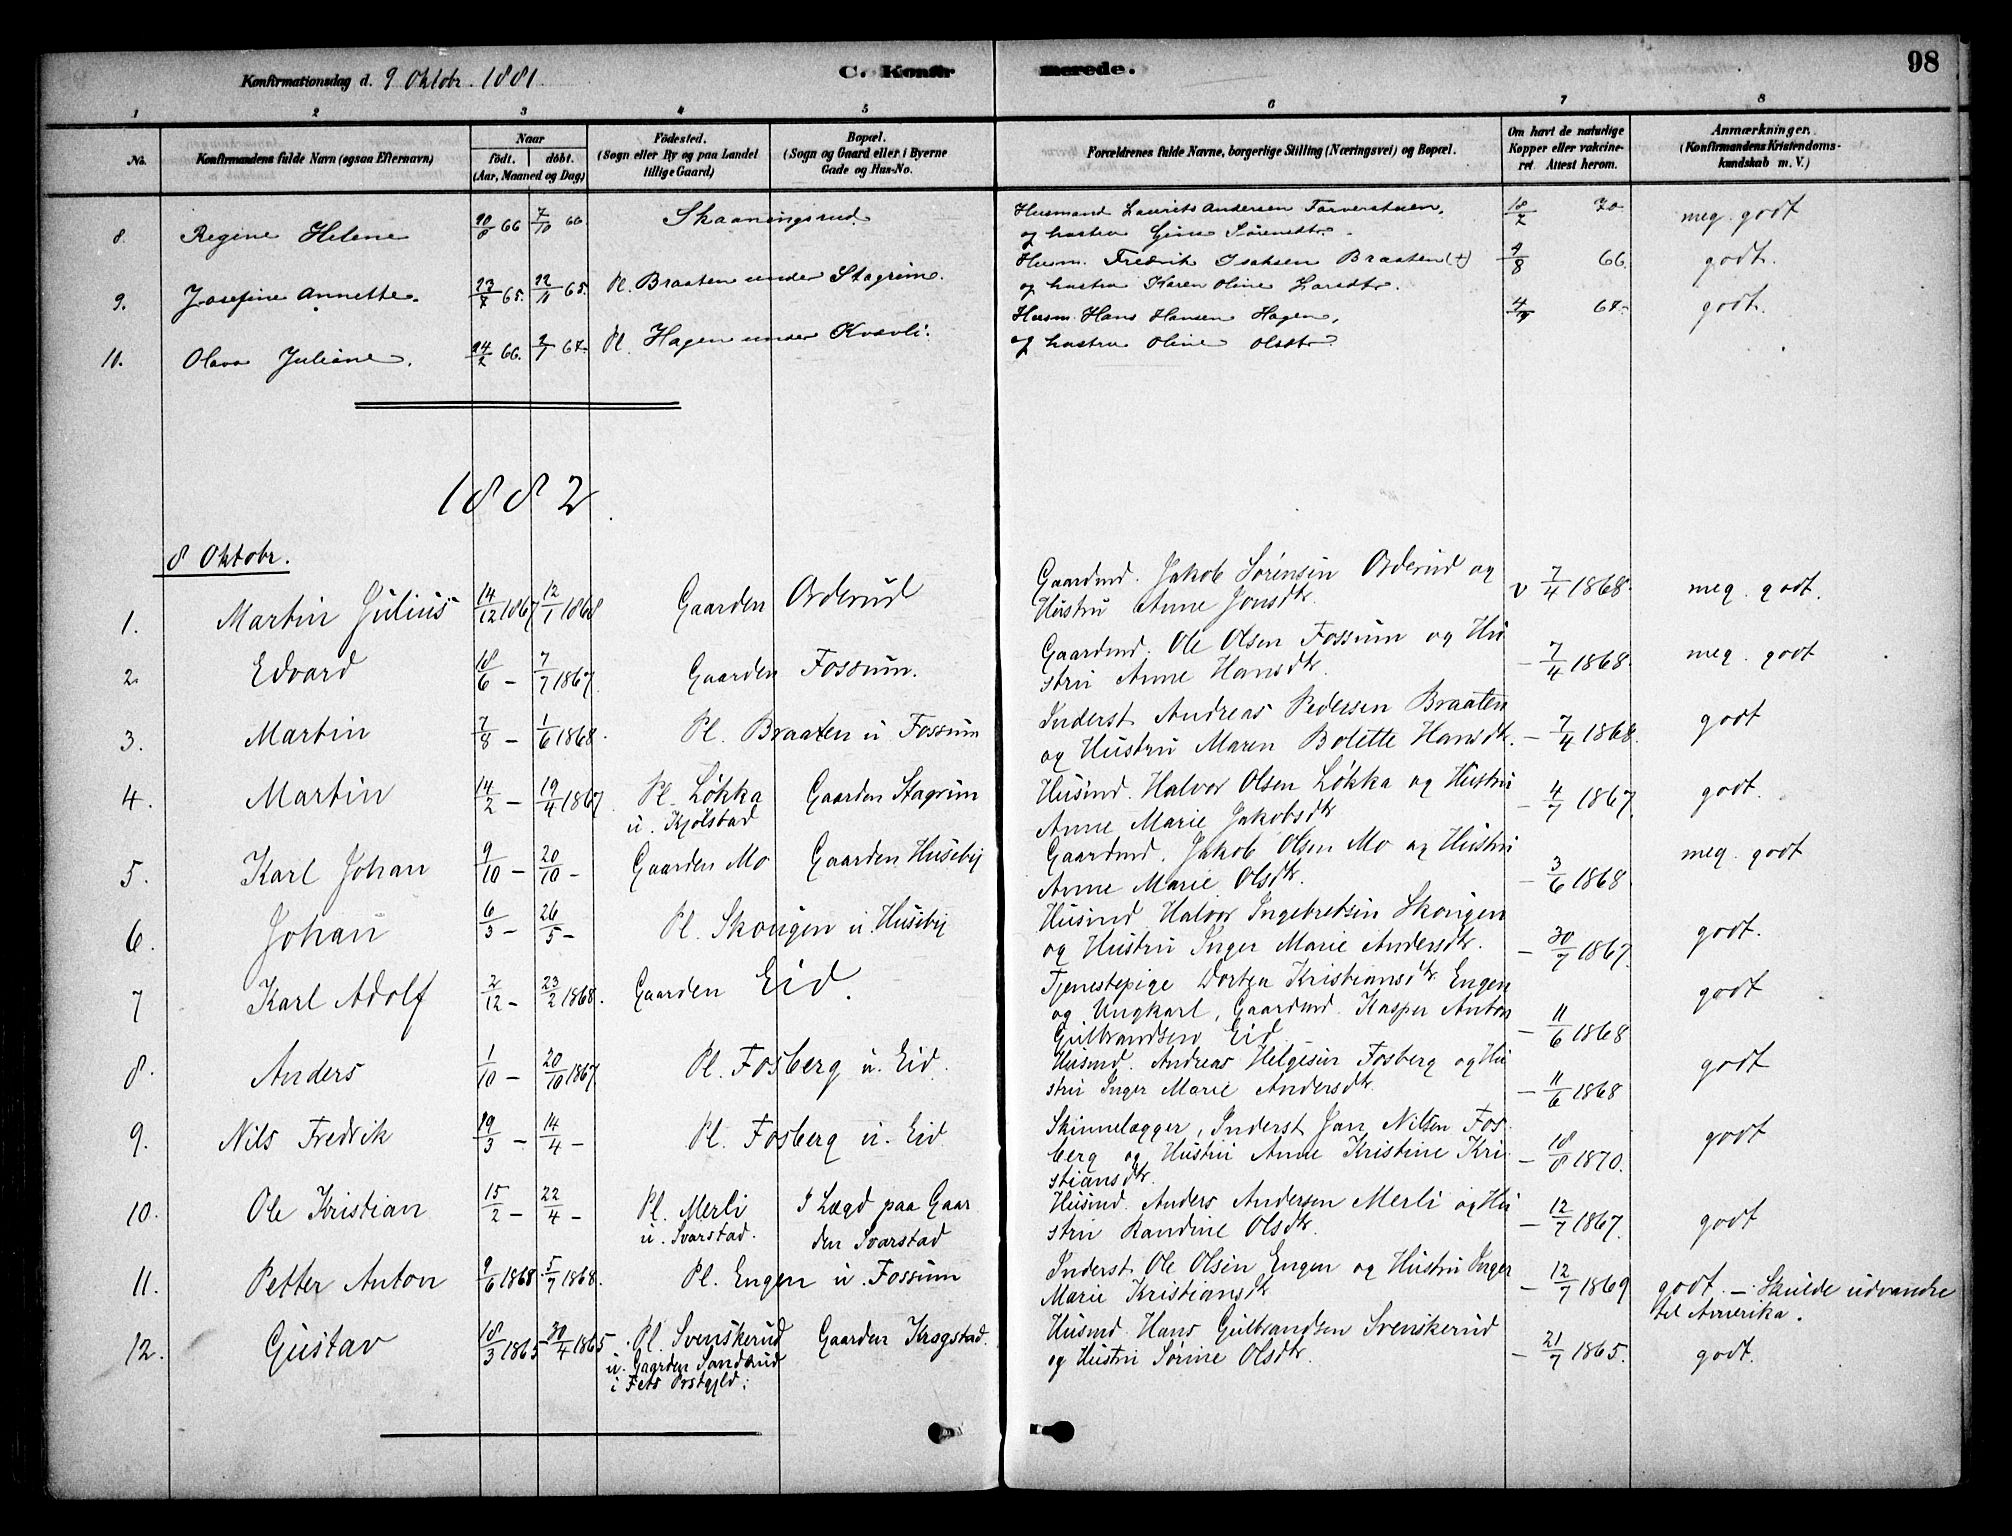 Konfirmationsdag d. 9 Oktobr. 1881.
C. Konfir
merede.
98
1 2 3 4 5 6 7 8
No.
Konfirmandens fulde Navn (ogsaa Efternavn)
Naar
födt. döbt.
(Aar, Maaned og Dag)
Födested.
(Sogn eller By og paa Landet
tillige Gaard)
Bopæl.
(Sogn og Gaard eller i Byerne
Gade og Hus-No.
Forældrenes fulde Navne, borgerlige Stilling (Næringsvei) og Bopæl.
Om havt de naturlige
Kopper eller vakcine-
ret Attest herom.
Anmærkninger.
(Konfirmandens Kristendoms-
kundskab m. V.)
8. Regine Helene 20/8 66 7/10 66. Skaaningsrud Husmand Laurits Andersen Torverstuen, 18/2 70 meg. godt
og hustru Gina Sørensdtr.
9. Josefine Annette. 23/7 65. 12/11 65. Pl. Braaten under Stagrim. Husm. Fredrik Isaksen Braaten (+) 9/8 66. godt.
og hustru Karen Oline Larsdtr.
10. Olava Juliane. 24/2 66. 2/1 67. Pl. Hagen under Kvævli. Husm. Hans Hansen Hagen, 4/9 67. godt.
og hustru Oline Olsdtr.
1882.
8 Oktobr.
1. Martin Julius 14/12 1867 12/1 1868 Gaarden Orderud Gaardmd. Jakob Sørensen Orderud og v 7/4 1868. meg. godt.
Hustru Anne Jonsdtr.
2. Edvard 18/6 - 7/7 1867. Gaarden Fossum. Gaardmd. Ole Olsen Fossum og Hu - 7/4 1868. meg. godt
stru Anne Hansdtr.
3. Martin 7/8 - 1/6 1868. Pl. Braaten u Fossum Inderst Andreas Pedersen Braaten - 7/4 1868. godt
og Hustru Maren Bolette Hansdtr.
4. Martin 14/2 - 19/4 1867. Pl. Løkka Gaarden Stagrim Husmd. Halvor Olsen Løkka og Hustru - 4/7 1867. godt.
u. Kjølstad Anne Marie Jakobsdtr
5. Karl Johan 9/10 - 20/10 - Gaarden Mo Gaarden Huseby Gaardmd. Jakob Olsen Mo og Hustru - 3/6 1868. meg. godt
Anne Marie Olsdtr.
6. Johan 6/3 - 26/5 - Pl. Skougen u. Huseby Husmd. Halvor Ingebretsen Skougen - 30/7 1867. godt.
og Hustru Inger Marie Andersdtr.
7 Karl Adolf 2/12 - 23/2 1868. Gaarden Eid. Tjenestepige Dortea Kristiansdtr. Engen - 11/6 1868 godt
og Ungkarl, Gaardmd. Kasper Anton
Gulbrandsen Eid.
8. Anders 1/10 - 20/10 1867. Pl. Fosberg u. Eid. Husmd. Andreas Helgesen Fosberg og Hu - 11/6 1868 godt
stru Inger Marie Andersdtr.
9. Nils Fredrik 19/3 - 14/4 - Pl. Fosberg u. Eid. Skinnelægger, Inderst Jan Nilsen Fos - 18/8 1870. godt
berg og Hustru Anne Kristine Kri
stiansdtr.
10. Ole Kristian 15/2 - 22/4 - Pl. Merli I Lægd paa Gaar Husmd. Anders Andersen Merli og Hu - 12/7 1867. godt
u. Svarstad. den Svarstad stru Randine Olsdtr.
11. Petter Anton 9/6 1868. 5/7 1868. Pl. Engen u. Fossum Inderst Ole Olsen Engen og Hustru Inger - 12/7 1869 godt. - Skulde udvandre
Marie Kristiansdtr til Amerika.
12. Gustav 18/3 1865 30/4 1865 Pl. Svenskerud Gaarden Krogstad. Husmd. Hans Gulbrandsen Svenskerud - 21/7 1865. godt.
u. Gaarden Sanderud og Hustru Sørine Olsdtr.
i Fets Prstgjld.